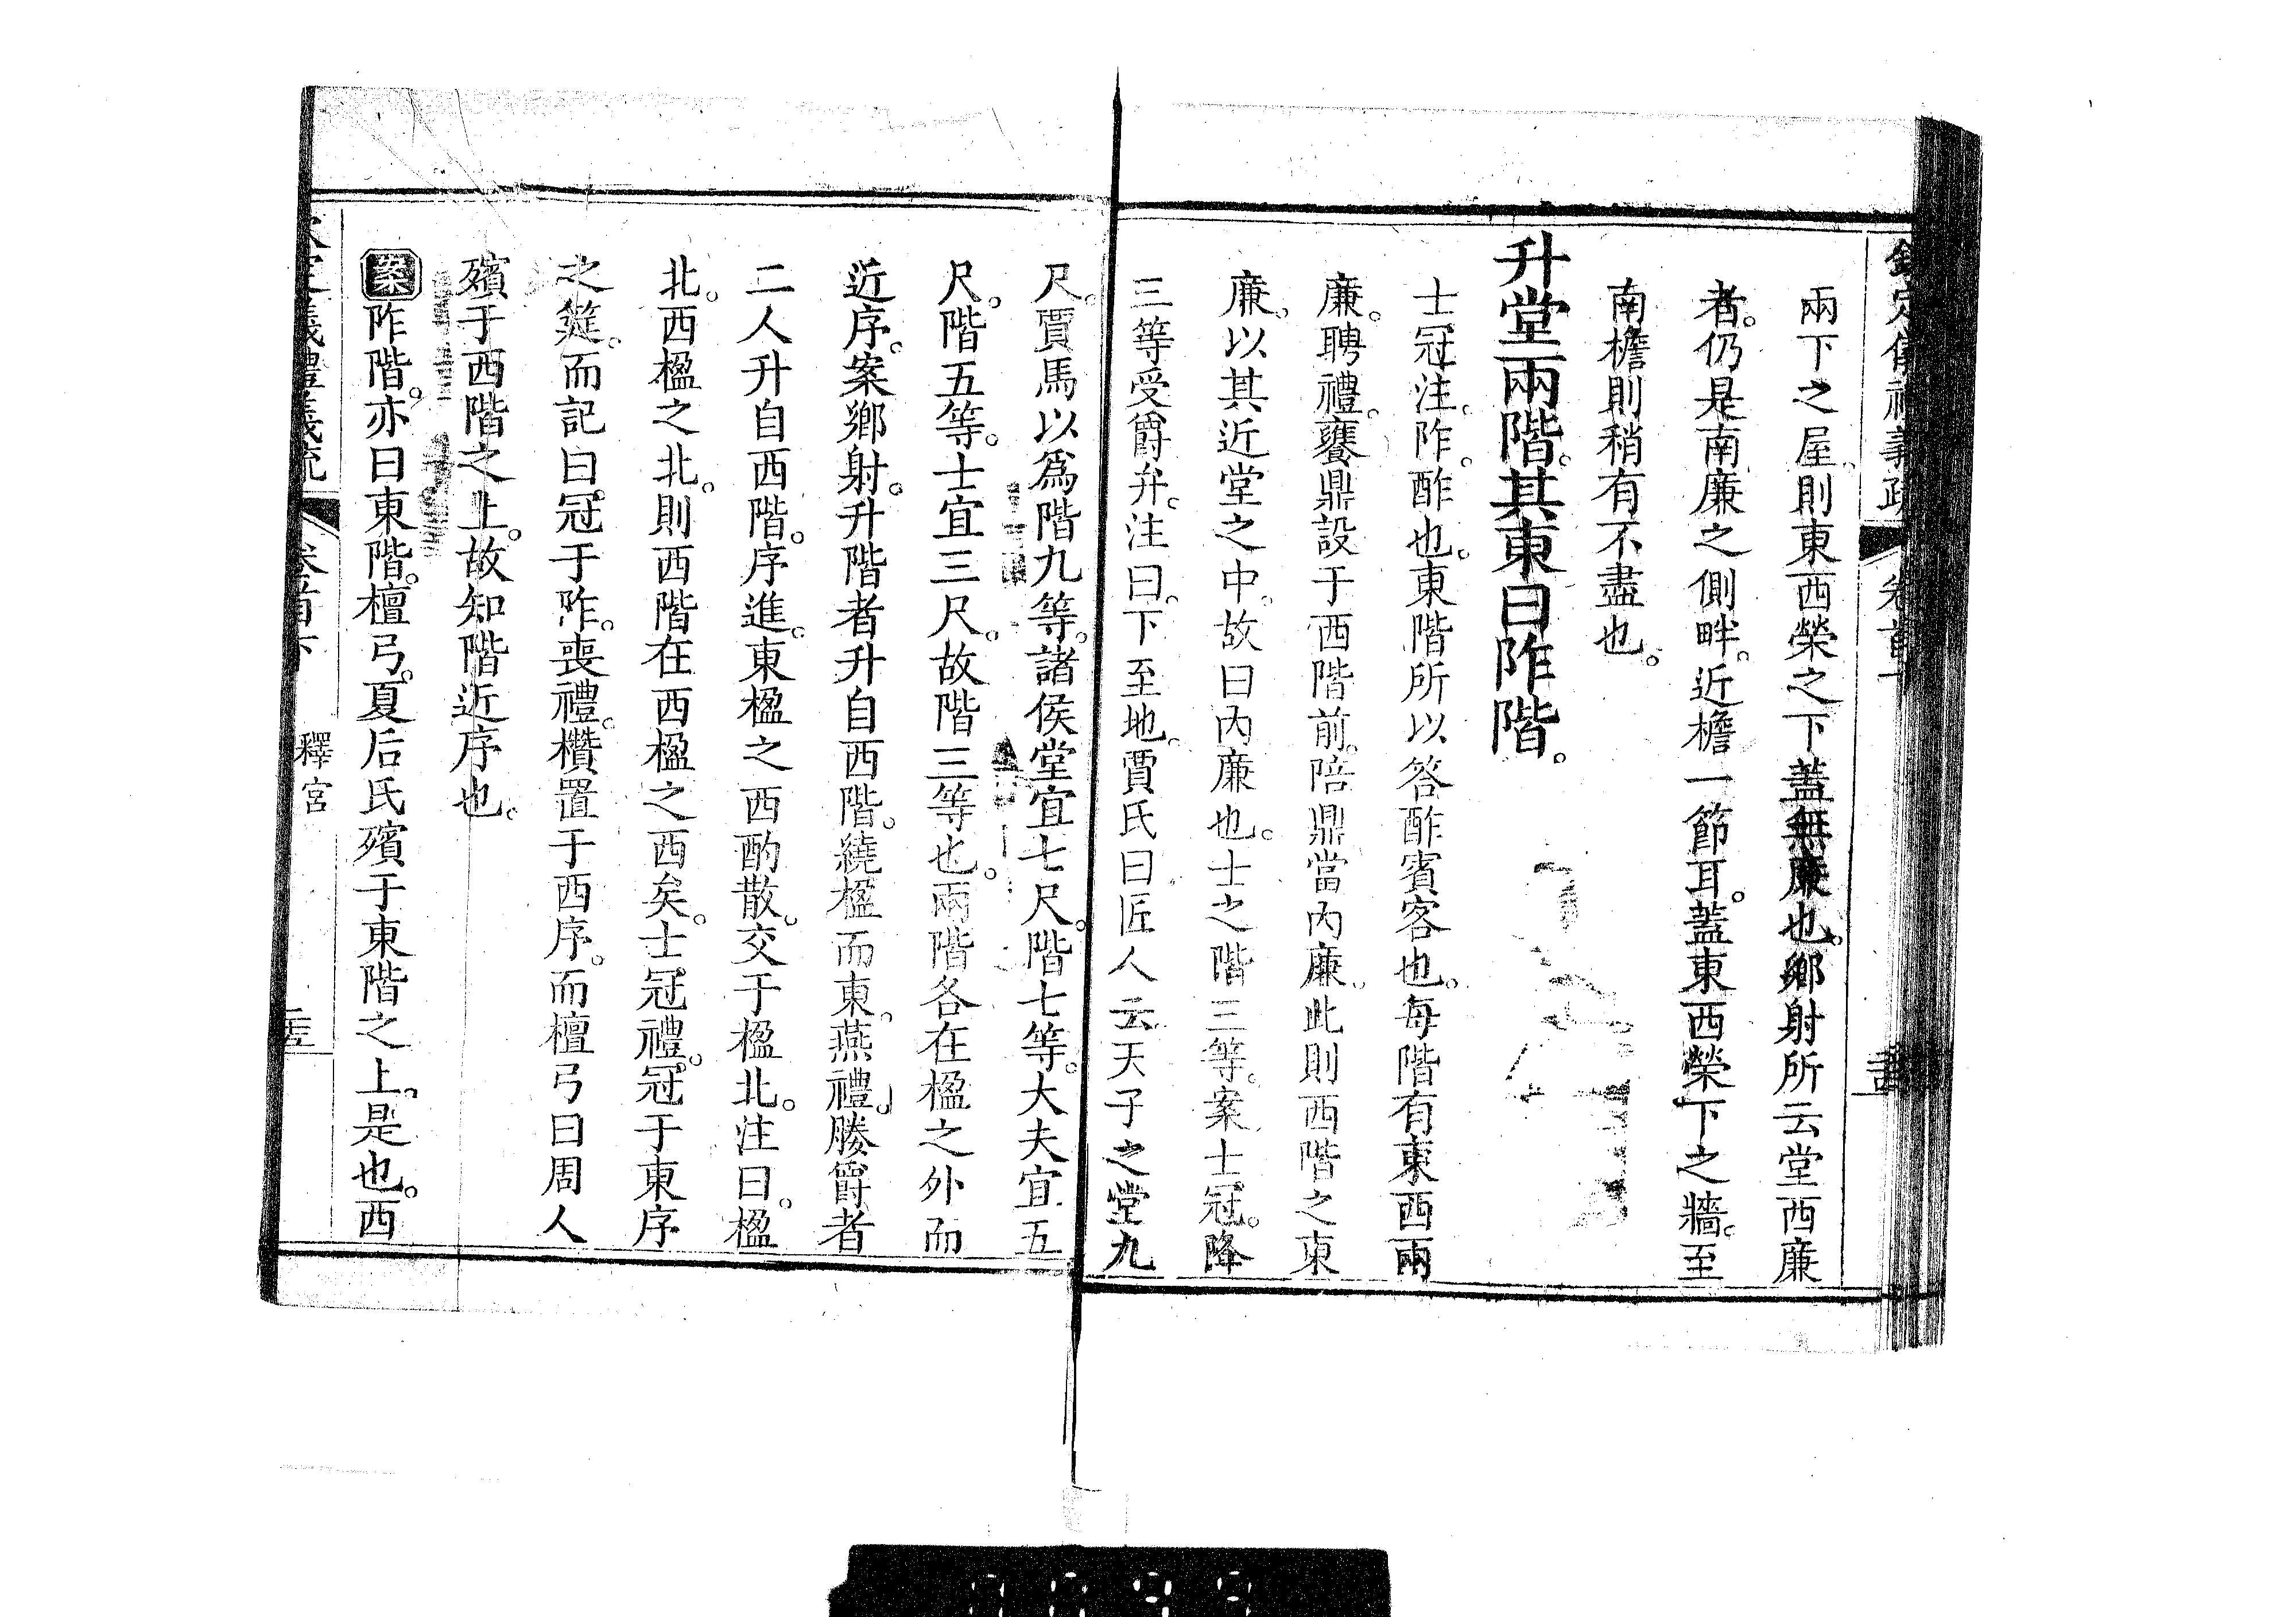 欽定儀禮義疏 卷首下
兩下之屋則東西榮之下蓋無廉也鄉射所云堂西廉
者仍是南廉之側畔近檐一節耳蓋東西榮下之牆至
南檐則稍有不盡也
升堂兩階其東曰阼階
士冠注阼酢也東階所以答酢賓客也每階有東西兩
廉聘禮饔鼎設于西階前陪鼎當內廉此則西階之東
廉以其近堂之中故曰內廉也士之階三等案士冠降
三等受爵弁注曰下至地賈氏曰匠人云天子之堂九
尺賈馬以爲階九等諸侯堂宜七尺階七等大夫宜五
尺階五等士宜三尺故階三等也兩階各在楹之外而
近序案鄉射升階者升自西階繞楹而東燕禮媵爵者
二人升自西階序進東楹之西酌散交于楹北注曰楹
北西楹之北則西階在西楹之西矣士冠禮冠于東序
之筵而記曰冠于阼喪禮欑置于西序而檀弓曰周人
殯于西階之上故知階近序也
案阼階亦曰東階檀弓夏后氏殯于東階之上是也西
欽定儀禮義疏 卷首下 釋宮